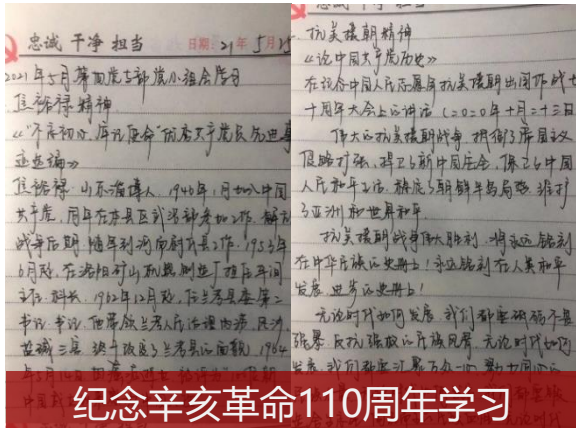 忠诚 干净 担当 日期:21年5月25
2021年5月第四党支部党小组会学习
焦裕禄精神
《"不忘初心、牢记使命"优秀共产党员先进事
迹选编》
焦裕禄,山东淄博人,1946年1月加入中国
共产党,同年在本县区武装部参加工作。解放
战争后期,随军到河南尉氏县工作。1953年
6月起,在洛阳矿山机器制造厂担任车间
主任、科长。1962年12月起,任兰考县委第二
书记、书记,他带领兰考人民治理内涝、风沙、
盐碱三害,
抗美援朝精神
《论中国共产党历史》
在纪念中国人民志愿军抗美援朝出国作战七
十周年大会上的讲话(2020年十月二十三日
伟大的抗美援朝战争,抵御了帝国主义
侵略扩张,捍卫了新中国安全,保卫了中国
人民和平生活,稳定了朝鲜半岛局势,维护
了亚洲和世界和平。
抗美援朝战争伟大胜利,将永远铭刻
在中华民族的史册上!永远铭刻在人类和平、
发展、进步的史册上!
无论时代如何发展,我们都要砥砺不畏
强暴、反抗强权的民族风骨。无论时代如何
发展,我们都要汇聚万众一心
纪念辛亥革命110周年学习